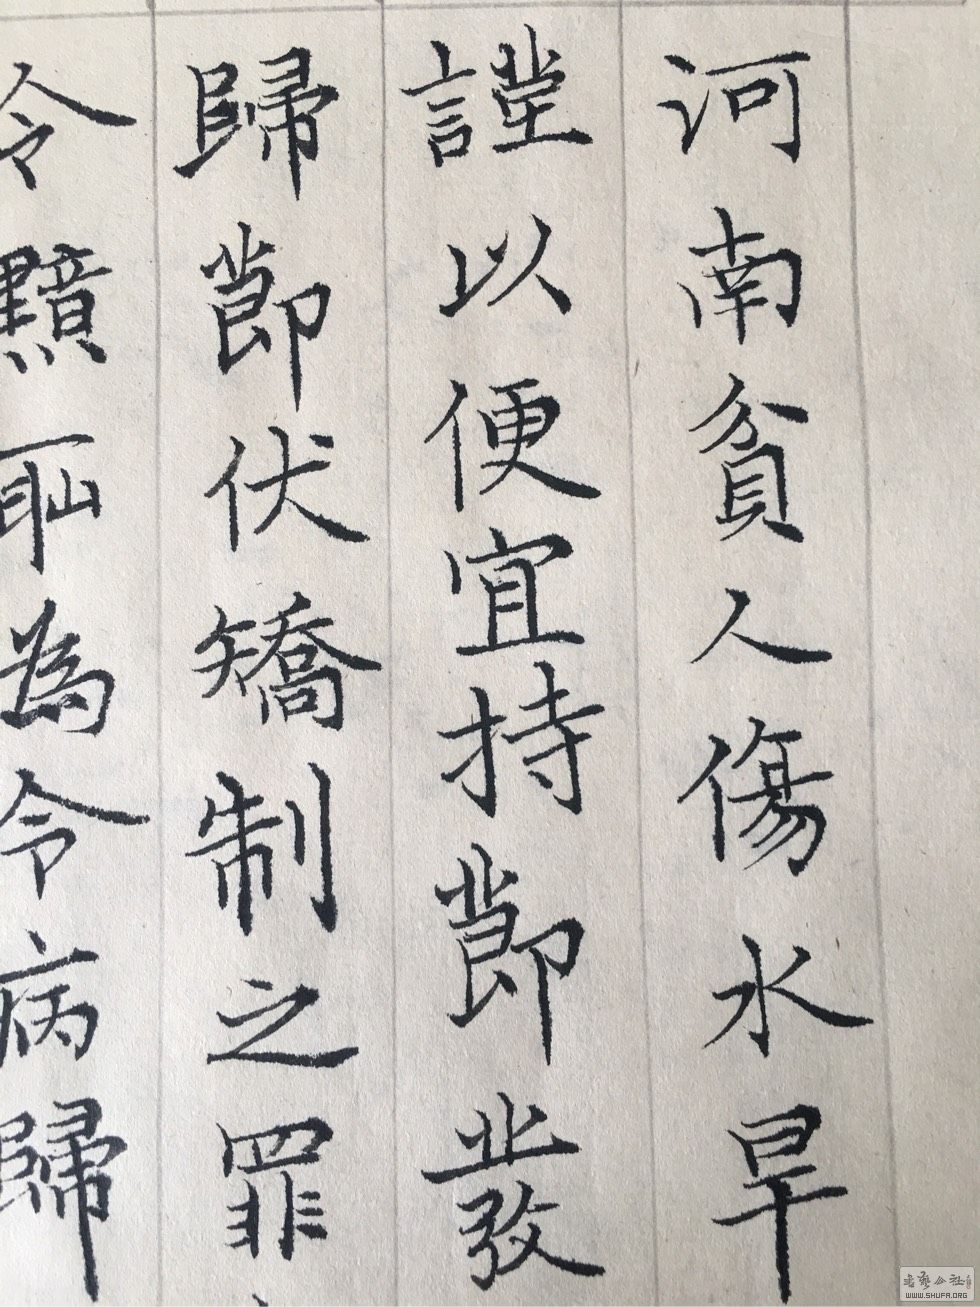 河南貧人傷水旱
謹以便宜持節發
歸節伏矯制之罪
令黯恥為令病歸
書藝公社
WWW.SHUFA.ORG